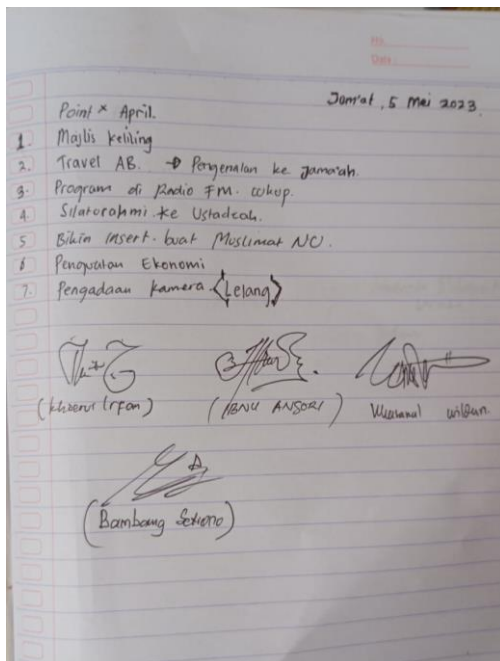 No.
Date:
Jam'at, 5 Mei 2023
Point × April.
1 Majlis keliling
2. Travel AB. → Pengenalan ke Jama'ah.
3. Program di Radio FM. cukup.
4. Silatorahmi ke Ustadzah.
5 Bikin insert buat Muslimat NU.
6 Penguatan Ekonomi
7. Pengadaan kamera <Lelang>
(Khaerul Irfan) (IBNU ANSORI) wildan.
(Bambang Setiono)